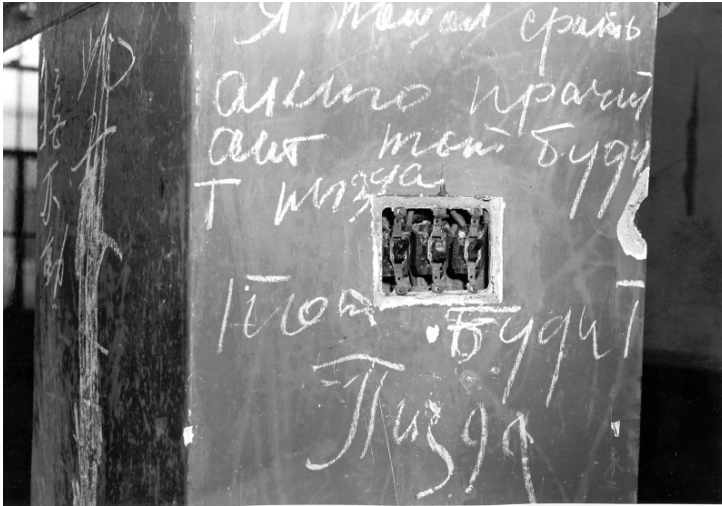 Я пошол срать
а кто прачит
аит той буду
т пизда
Той Будит
Пизда